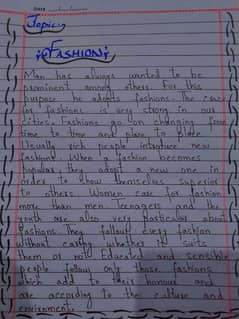 Topic
"FASHION"
Man has always wanted to be
prominent among others. For this
purpose he adopts fashions. The craze
of fashions is very strong in our
cities. Fashions go on changing from
time to time and place to place
Usually rich people introduce new
fashions. When a fashion becomes
popular, they adopt a new one in
order to show themselves superior
to others. Women care for fashion
more than men. Teenagers and the
youth are also very particular about
fashions. They follow every fashion
without caring whether it suits
them or not. Educated and sensible
people follow only those fashions
which add to their honour and
are according to the culture and
environment.